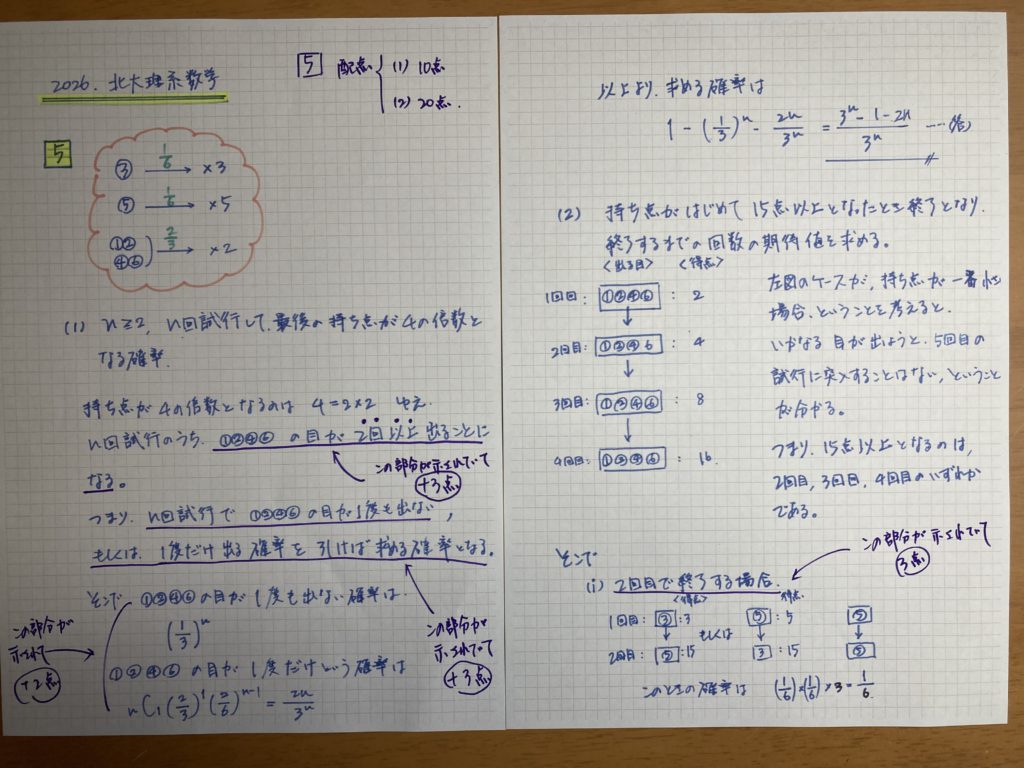 2026. 北大理系数学
5 配点 (1) 10点
(2) 20点.
5
③ 1/6 → ×3
⑤ 1/6 → ×5
①②④⑥ 2/3 → ×2
(1) n≧2, n回試行して、最後の持ち点が4の倍数と
なる確率.
持ち点が4の倍数となるのは 4=2×2 ゆえ
n回試行のうち、①②④⑥ の目が2回以上出ることに
なる。
この部分が示されていて
+3点
つまり、n回試行で①②④⑥の目が1度も出ない,
もしくは、1度だけ出る確率を引けば求める確率となる。
そこで ①②④⑥の目が1度も出ない確率は.
(1/3)^n
この部分が
示されて
+2点
この部分が
示されていて
+3点
①②④⑥ の目が1度だけという確率は
nC1(2/3)^1(2/6)^(n-1) = 2n/3^n
以上より、求める確率は
1-(1/3)^n - 2n/3^n = (3^n-1-2n)/3^n ---(答)
(2) 持ち点がはじめて15点以上となったとき終了となり、
終了するまでの回数の期待値を求める。
<出る目> <得点>
1回目: ①②④⑥ : 2
2回目: ①②④6 : 4
3回目: ①②④⑥ : 8
4回目: ①②④⑥ : 16
左図のケースが、持ち点が一番小さい
場合、ということを考えると、
いかなる目が出ようと、5回目の
試行に突入することはない、ということ
が分かる。
つまり、15点以上となるのは、
2回目, 3回目, 4回目のいずれか
である。
そこで
この部分が示されていて
3点
(i) 2回目で終了する場合.
<得点> 得点
1回目: ③:3 もしくは ⑤:5 ⑤
2回目: ⑤:15 3:15 ⑤
このときの確率は (1/6)×(1/6)×3=1/6.